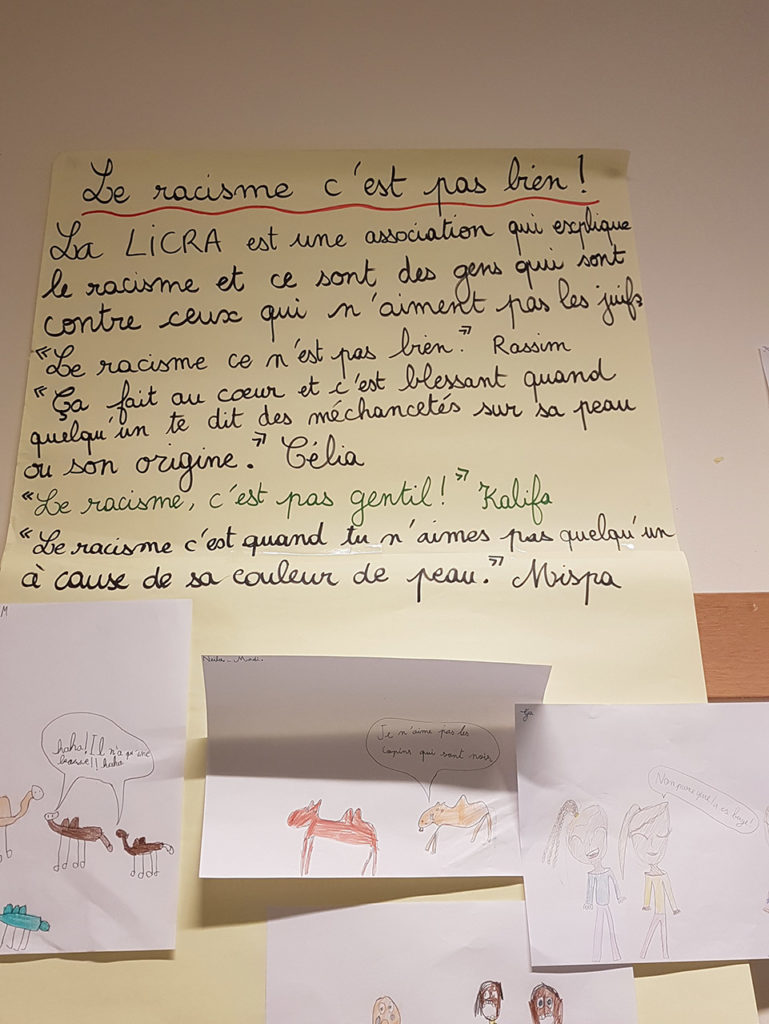 Le racisme c'est pas bien !
La LiCRA est une association qui explique
le racisme et ce sont des gens qui sont
contre ceux qui n'aiment pas les juifs
"Le racisme ce n'est pas bien." Rassim
"Ça fait au cœur et c'est blessant quand
quelqu'un te dit des méchancetés sur sa peau
ou son origine." Célia
"Le racisme, c'est pas gentil !" Kalifa
"Le racisme c'est quand tu n'aimes pas quelqu'un
à cause de sa couleur de peau." Mispa
M
haha! Il n'a qu'une
bosse!! haha
Neila - Mindi.
Je n'aime pas les
copins qui sont noir
Non parce que tu es